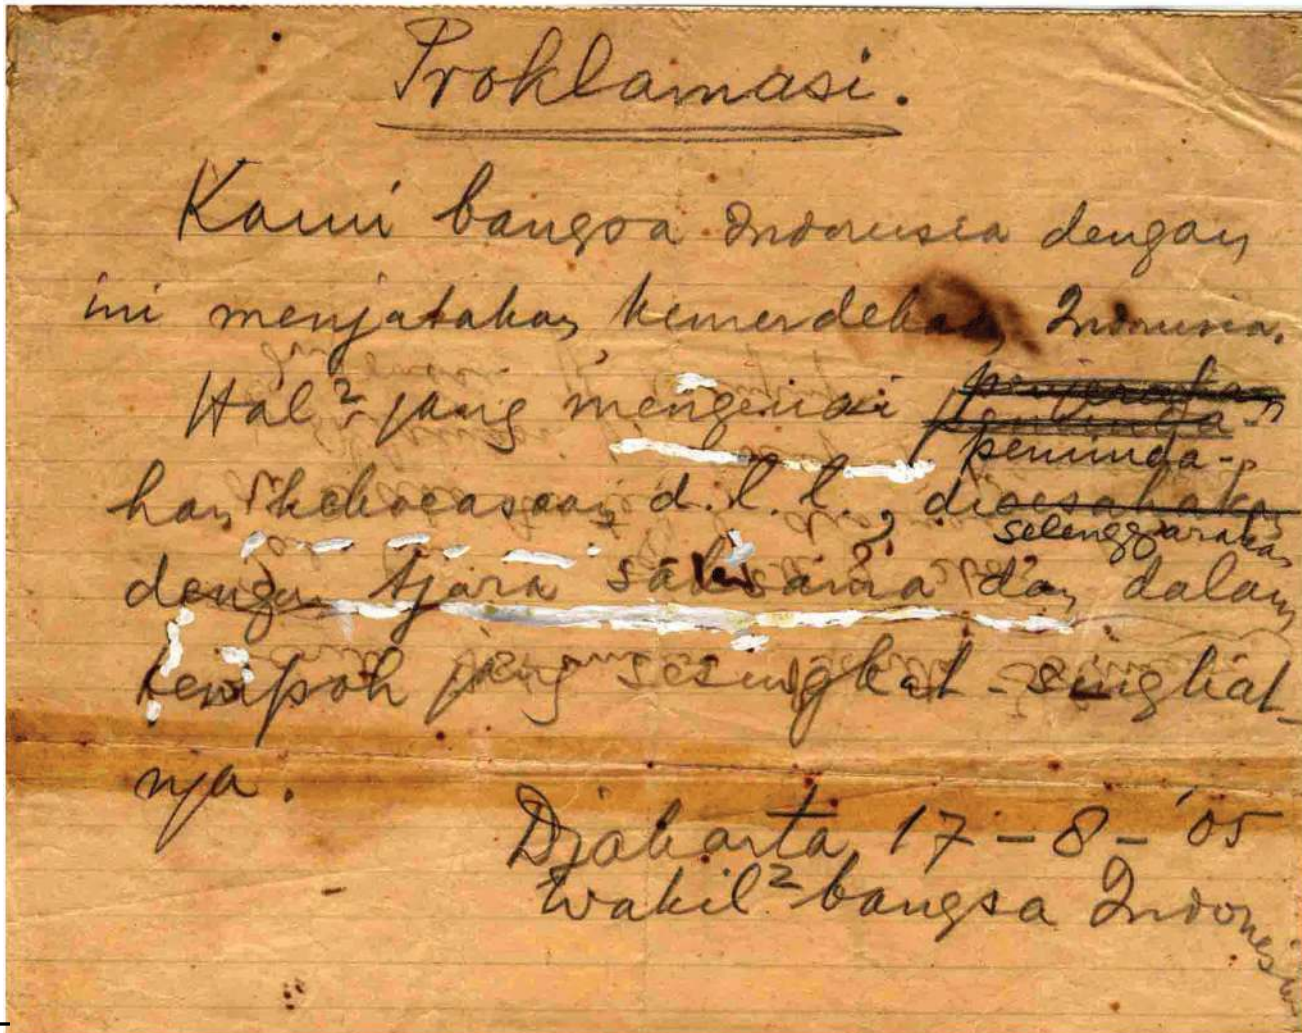 Proklamasi.
Kami bangsa Indonesia dengan
ini menjatakan kemerdekaan Indonesia.
Hal² jang mengenai penjerahan
peminda-
peminda-
han kekoeasaan d.l.l., dioesahakan
selenggarakan
dengan tjara saksama dan dalam
tempoh jang sesingkat-singkat-
nja.
Djakarta, 17 - 8 - '05
Wakil² bangsa Indonesia